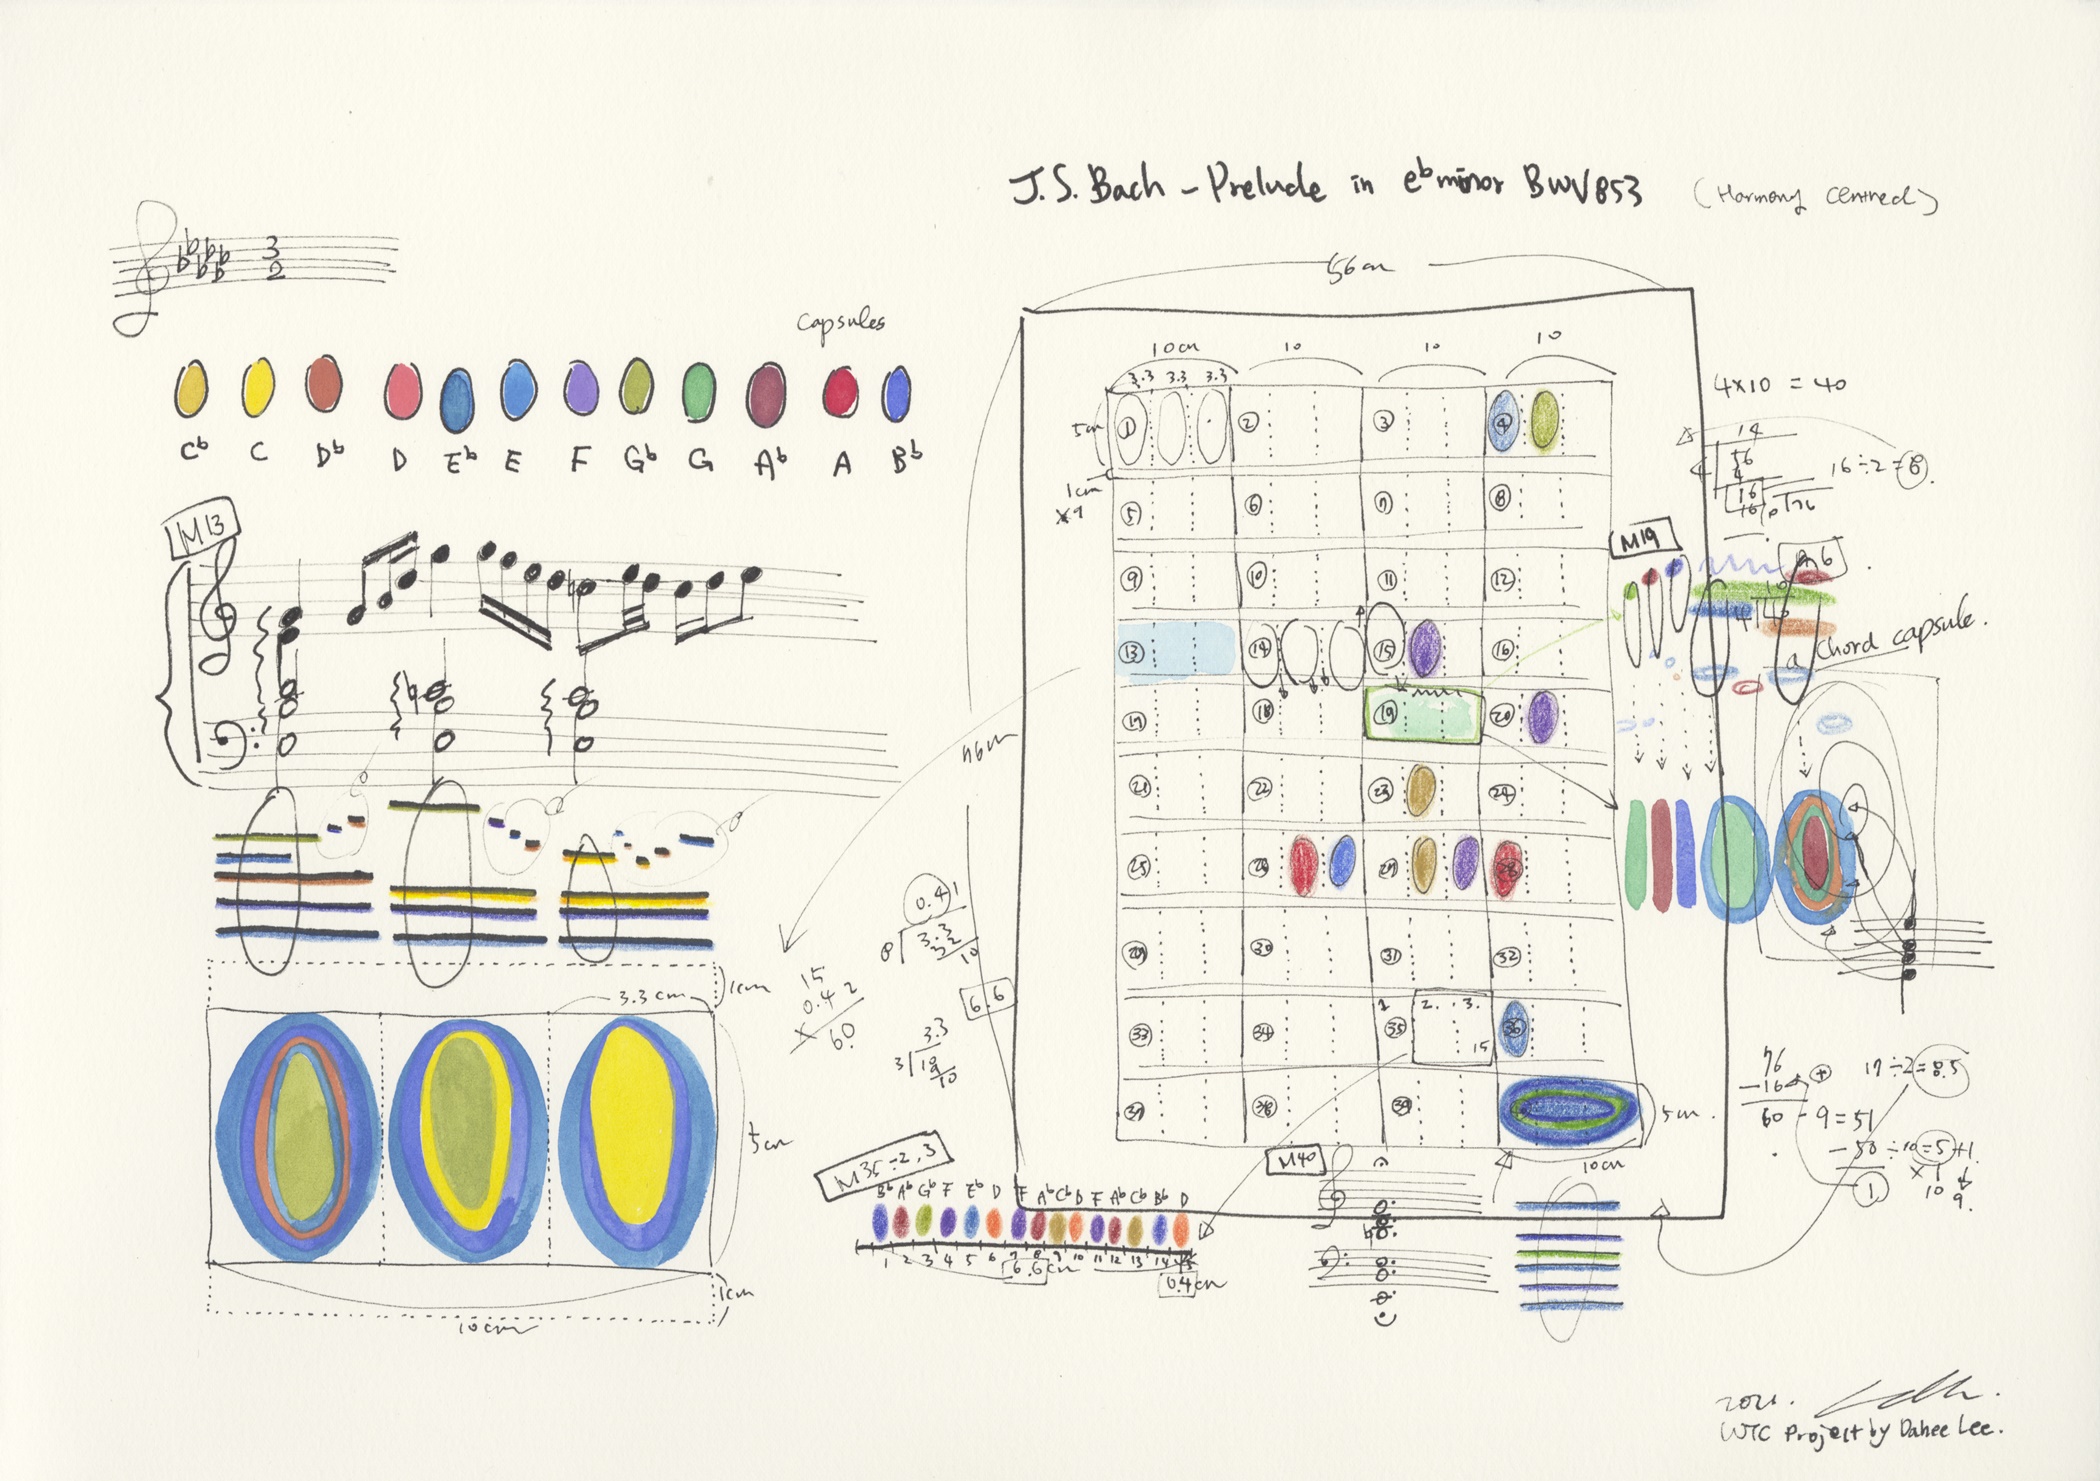 J.S. Bach - Prelude in e♭ minor BWV853 (Harmony Centred)
3
2
Capsules
C♭ C D♭ D E♭ E F G♭ G A♭ A B♭
M13
56cm
10cm 10 10 10
3.3 3.3 3.3
5cm
1cm
① ② ③ ④
⑤ ⑥ ⑦ ⑧
⑨ ⑩ ⑪ ⑫
⑬ ⑭ ⑮ ⑯
⑰ ⑱ ⑲ ⑳
㉑ ㉒ ㉓ ㉔
㉕ ㉖ ㉗ ㉘
㉙ ㉚ ㉛ ㉜
㉝ ㉞ ㉟ ㊱
2. 3.
15
㊲ ㊳ ㊴
5cm.
10cm
4x10 = 40
14
56
4
16
16÷2=8.
M19
a Chord capsule.
76cm
0.41
8 3.3
32
10
15
0.4 2
60
6.6
3.3
3 10
9
10
1cm
3.3cm
5cm
1cm
10cm
M35÷2,3
B♭ A♭ G♭ F E♭ D F A♭ C♭ D F A♭ C♭ B♭ D
1 2 3 4 5 6 7 8 9 10 11 12 13 14 15
6.6cm
0.4cm
M40
76
-16
17÷2=8.5
60 - 9=51
- 50 ÷10=5+1
x 1
10 9.
1
2021.
WTC Project by Dahee Lee.